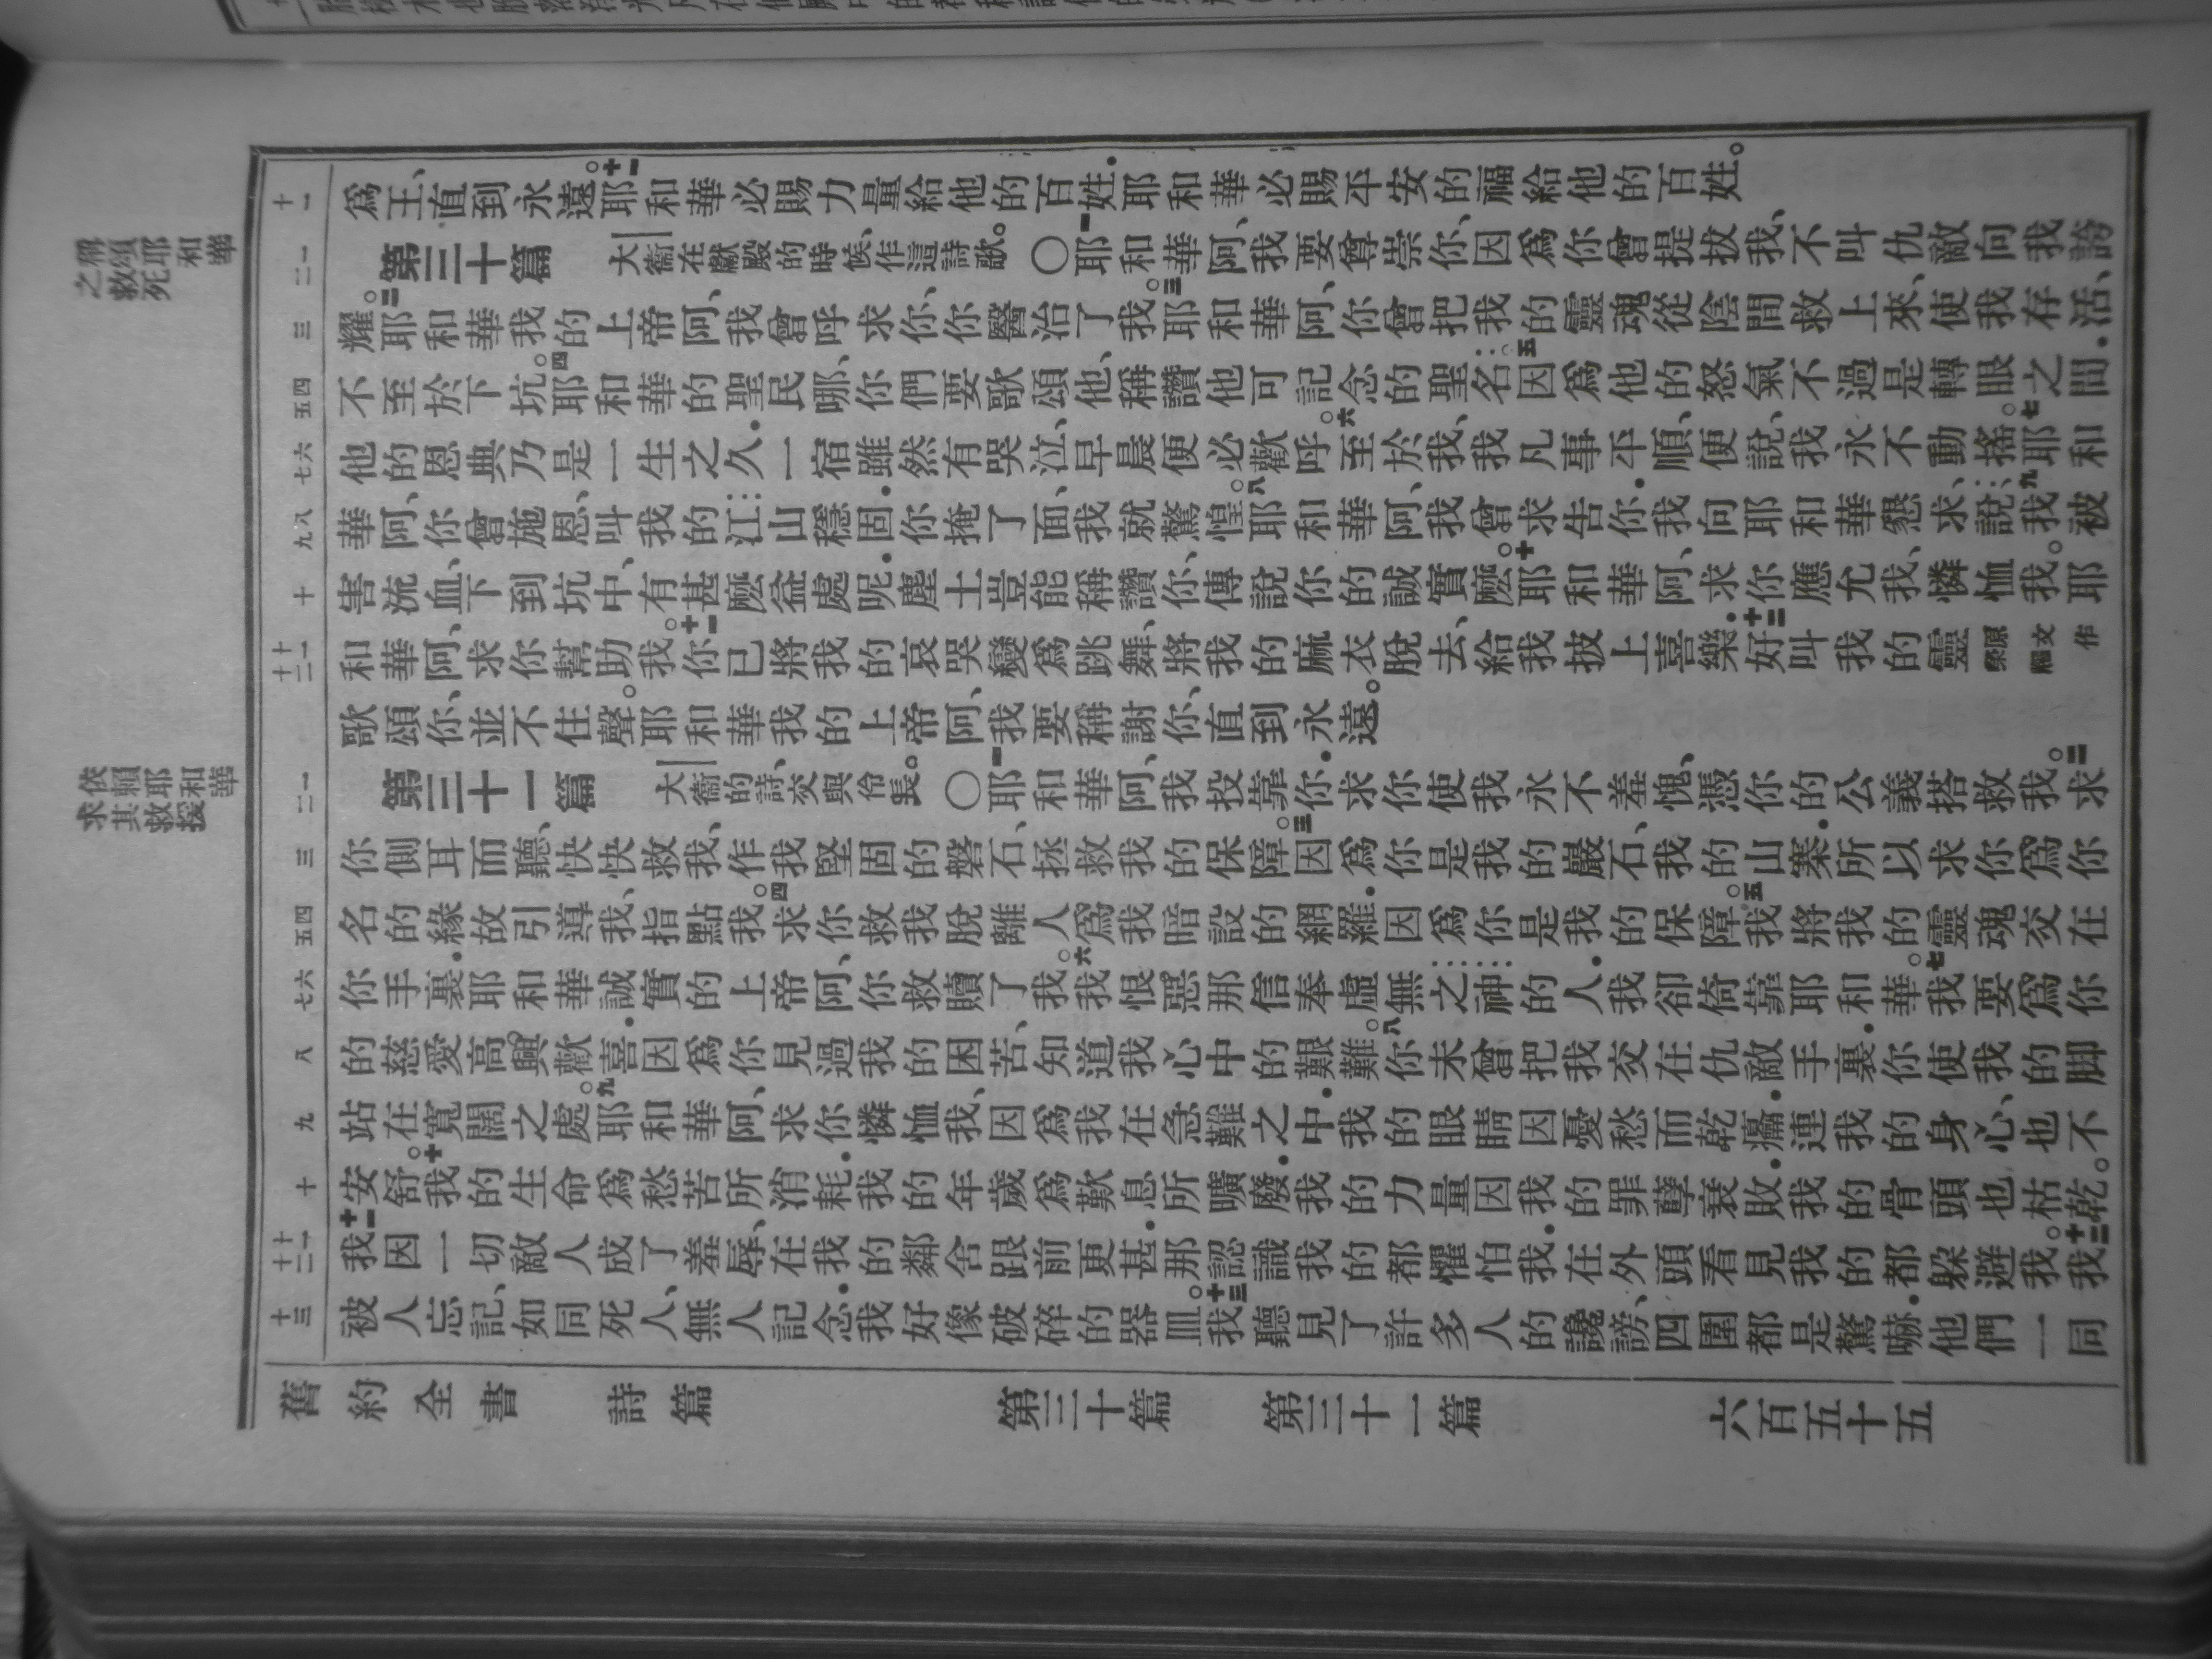 稱頌耶和華
之救死
依賴耶和華
求其救援
十一
爲王、直到永遠。十一耶和華必賜力量給他的百姓．耶和華必賜平安的福給他的百姓。
一二
第三十篇 大衞在獻殿的時候、作這詩歌。〇一耶和華阿、我要尊崇你、因爲你曾提拔我、不叫仇敵向我誇
三
耀。二耶和華我的上帝阿、我曾呼求你、你醫治了我。三耶和華阿、你曾把我的靈魂從陰間救上來、使我存活、
四五
不至於下坑。四耶和華的聖民哪、你們要歌頌他、稱讚他可記念的聖名。五因爲他的怒氣不過是轉眼之間．
六七
他的恩典乃是一生之久．一宿雖然有哭泣、早晨便必歡呼。六至於我、我凡事平順、便說、我永不動搖。七耶和
八九
華阿、你曾施恩、叫我的江山穩固．你掩了面、我就驚惶。八耶和華阿、我曾求告你．我向耶和華懇求、說、九我被
十
害流血、下到坑中、有甚麽益處呢．塵土豈能稱讚你、傳說你的誠實麽。十耶和華阿、求你應允我、憐恤我。耶
十一十二
和華阿、求你幫助我。十一你已將我的哀哭變爲跳舞、將我的麻衣脫去、給我披上喜樂．十二好叫我的靈原文作榮耀
歌頌你、並不住聲。耶和華我的上帝阿、我要稱謝你、直到永遠。
一二
第三十一篇 大衞的詩、交與伶長。〇一耶和華阿、我投靠你．求你使我永不羞愧、憑你的公義搭救我。二求
三
你側耳而聽、快快救我、作我堅固的磐石、拯救我的保障。三因爲你是我的巖石、我的山寨．所以求你爲你
四五
名的緣故引導我、指點我。四求你救我脫離人爲我暗設的網羅．因爲你是我的保障。五我將我的靈魂交在
六七
你手裏．耶和華誠實的上帝阿、你救贖了我。六我恨惡那信奉虛無之神的人．我卻倚靠耶和華。七我要爲你
八
的慈愛高興歡喜．因爲你見過我的困苦、知道我心中的艱難。八你未曾把我交在仇敵手裏．你使我的脚
九
站在寬闊之處。九耶和華阿、求你憐恤我、因爲我在急難之中．我的眼睛因憂愁而乾癟．連我的身心、也不
十
安舒。十我的生命爲愁苦所消耗．我的年歲爲歎息所曠廢．我的力量因我的罪孽衰敗．我的骨頭也枯乾。
十一十二
十一我因一切敵人成了羞辱、在我的鄰舍跟前更甚．那認識我的都懼怕我．在外頭看見我的都躱避我。十二我
十三
被人忘記、如同死人、無人記念．我好像破碎的器皿。十三我聽見了許多人的讒謗、四圍都是驚嚇．他們一同
舊約全書 詩篇 第三十篇 第三十一篇 六百五十五